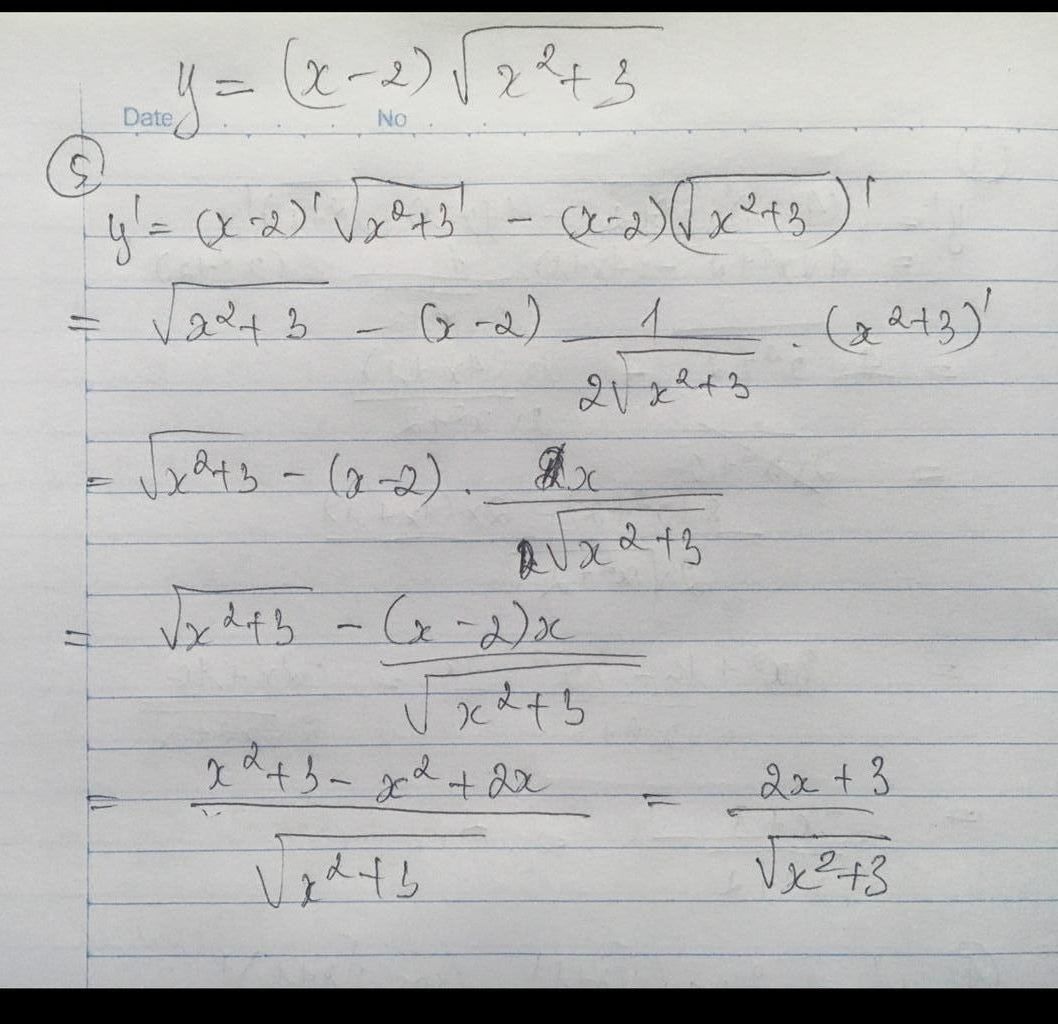 y = (x-2) √(x²+3)
Date No
5
y' = (x-2)' √(x²+3) - (x-2)(√(x²+3))'
= √(x²+3) - (x-2) 1/(2√(x²+3)) . (x²+3)'
= √(x²+3) - (x-2) . 2x/(2√(x²+3))
= √(x²+3) - (x-2)x/√(x²+3)
= (x²+3-x²+2x)/√(x²+3) = (2x+3)/√(x²+3)